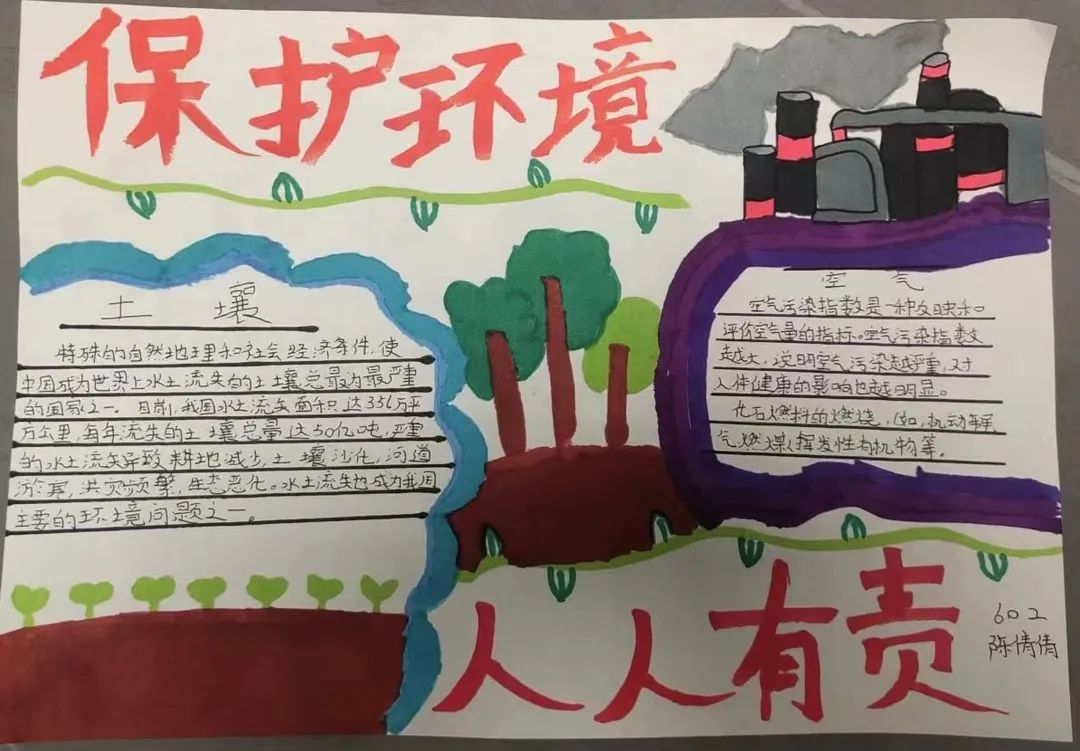 保护环境
土壤
特殊的自然地理和社会经济条件,使
中国成为世界上水土流失的土壤总最为最严重
的国家之一。目前,我国水土流失面积达356万平
方公里,每年流失的土壤总量达50亿吨,严重
的水土流失导致耕地减少,土壤沙化,河道
淤塞,洪灾频繁,生态恶化。水土流失也成为我国
主要的环境问题之一。
空气
空气污染指数是一种反映和
评价空气量的指标。空气污染指数
越大,说明空气污染越严重,对
人体健康的影响也越明显。
化石燃料的燃烧,如,机动车尾
气燃煤挥发性有机物等。
人人有责
602
陈倩倩